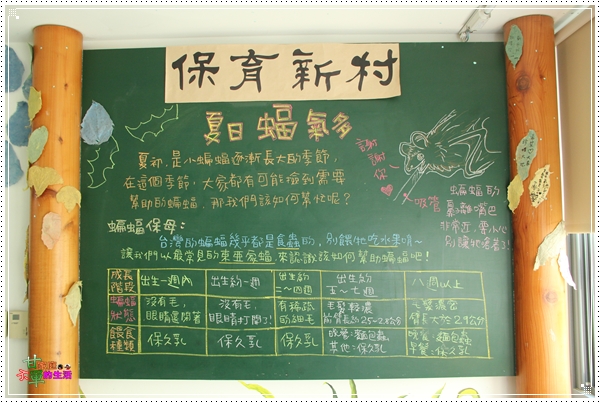 保育新村
夏日蝙氣多
夏初,是小蝙蝠逐漸長大的季節,
在這個季節,大家都有可能撿到需要
幫助的蝙蝠,那我們該如何幫忙呢?
謝謝你
吸管
蝙蝠的
鼻離嘴巴
非常近,要小心
別讓牠嗆著了!
蝙蝠保母:
台灣的蝙蝠幾乎都是食蟲的,別餵牠吃水果唷~
讓我們以最常見的東亞家蝠來認識該如何幫助蝙蝠吧!
成長階段 出生一週內 出生約一週 出生約二~四週 出生約五~七週 八週以上
蝙蝠狀態 沒有毛,眼睛還閉著 沒有毛,眼睛打開了! 有稀疏的細毛 毛髮較濃 前臂長約2.5~2.9公分 毛髮濃密 臂長大於2.9公分
餵食種類 保久乳 保久乳 保久乳 晚餐:麵包蟲 其他:保久乳 晚餐:麵包蟲 早餐:保久乳
的生活